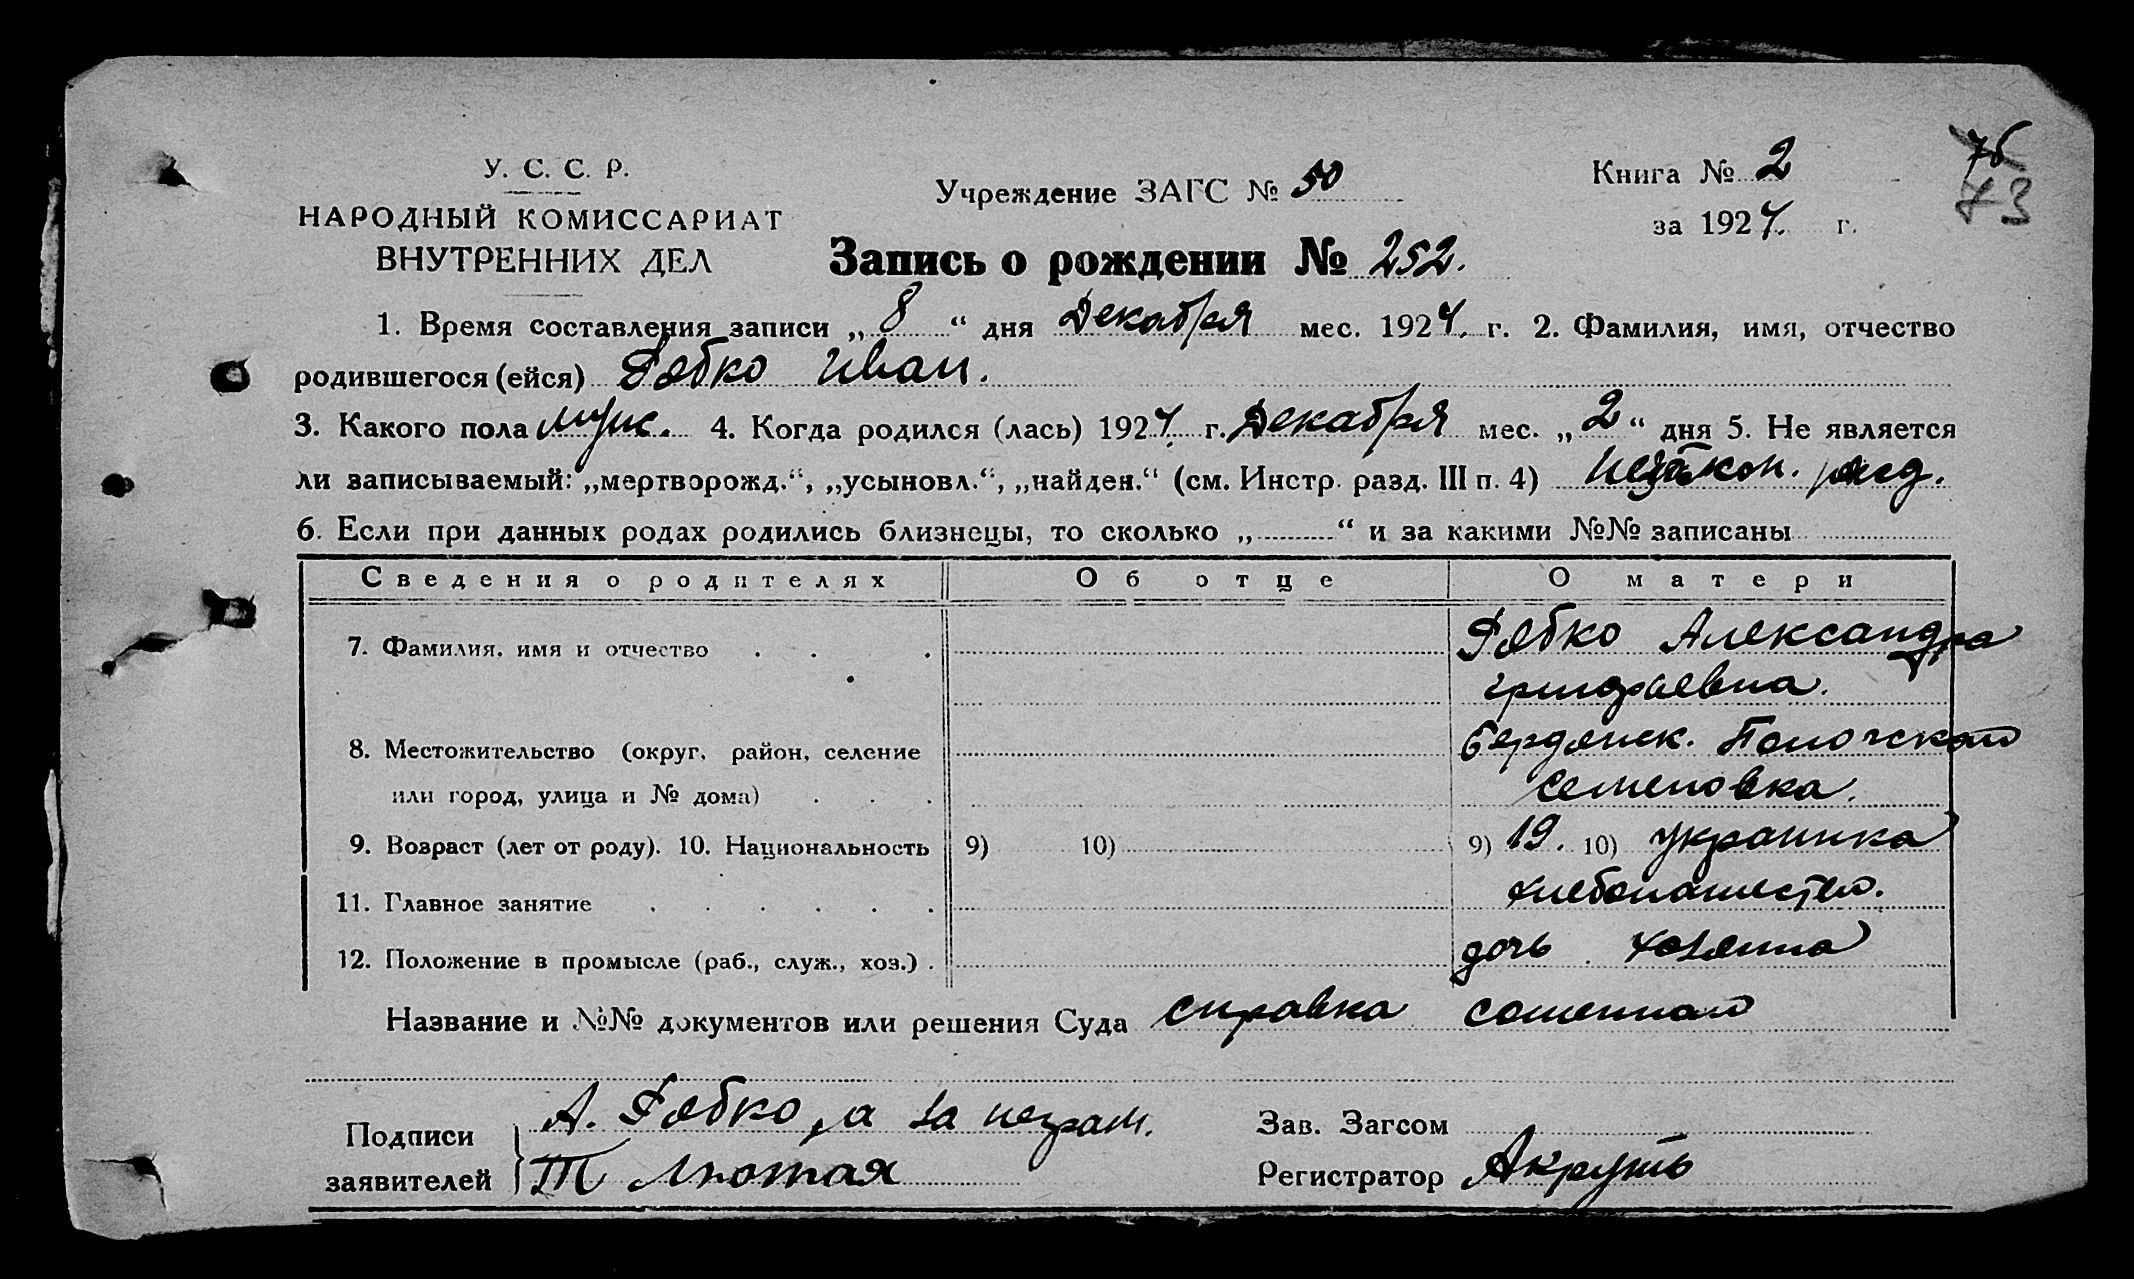 76
73
У. С. С. Р.
НАРОДНЫЙ КОМИССАРИАТ
ВНУТРЕННИХ ДЕЛ
Учреждение ЗАГС № 50
Книга № 2
за 1924 г.
Запись о рождении № 252.
1. Время составления записи „ 8 “ дня Декабря мес. 1924. г. 2. Фамилия, имя, отчество
родившегося (ейся) Рябко Иван.
3. Какого пола муж. 4. Когда родился (лась) 1924 г. Декабря мес. „ 2 “ дня 5. Не является
ли записываемый: „мертворожд.“, „усыновл.“, „найден.“ (см. Инстр. разд. III п. 4) незакон. рожд.
6. Если при данных родах родились близнецы, то сколько „ “ и за какими №№ записаны
Сведения о родителях Об отце О матери
7. Фамилия, имя и отчество Рябко Александра
8. Местожительство (округ, район, селение Бердянск.
или город, улица и № дома) Семеновка.
9. Возраст (лет от роду). 10. Национальность 9) 10) 9) 19. 10) украинка
11. Главное занятие хлебопашество.
12. Положение в промысле (раб., служ., хоз.) дочь хозяина
Название и №№ документов или решения Суда справка
Подписи
заявителей
А. Рябко, а за неграм.
Т Лютая
Зав. Загсом
Регистратор